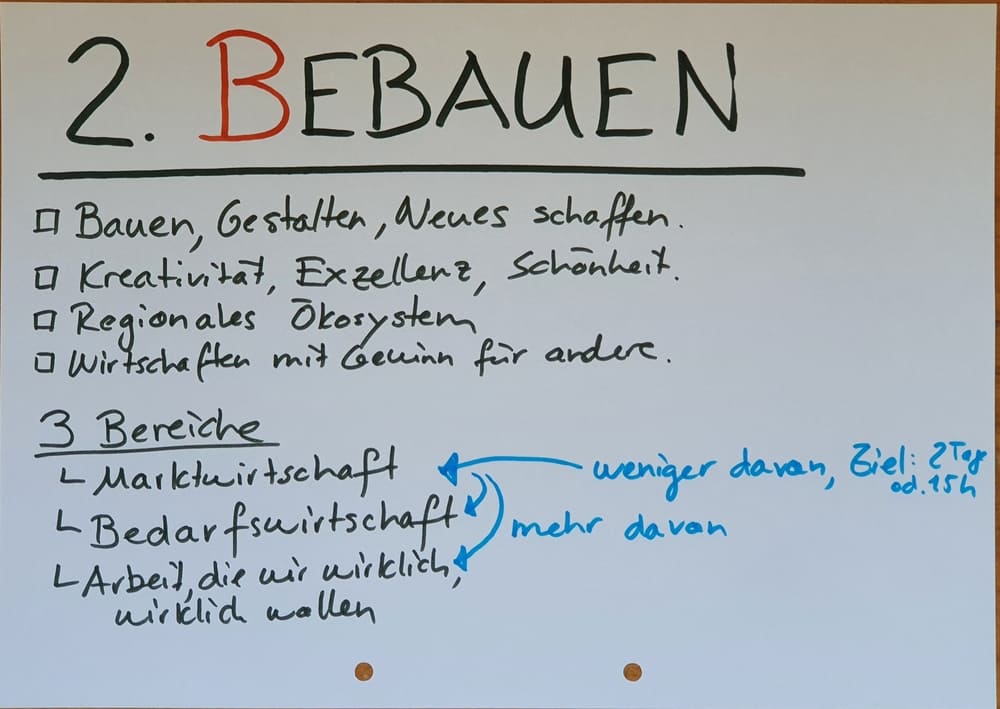 2. BEBAUEN
□ Bauen, Gestalten, Neues schaffen.
□ Kreativität, Exzellenz, Schönheit.
□ Regionales Ökosystem
□ Wirtschaften mit Gewinn für andere.
3 Bereiche
└ Marktwirtschaft
weniger davon, Ziel: 2 Tage
od. 15h
└ Bedarfswirtschaft
mehr davon
└ Arbeit, die wir wirklich,
wirklich wollen